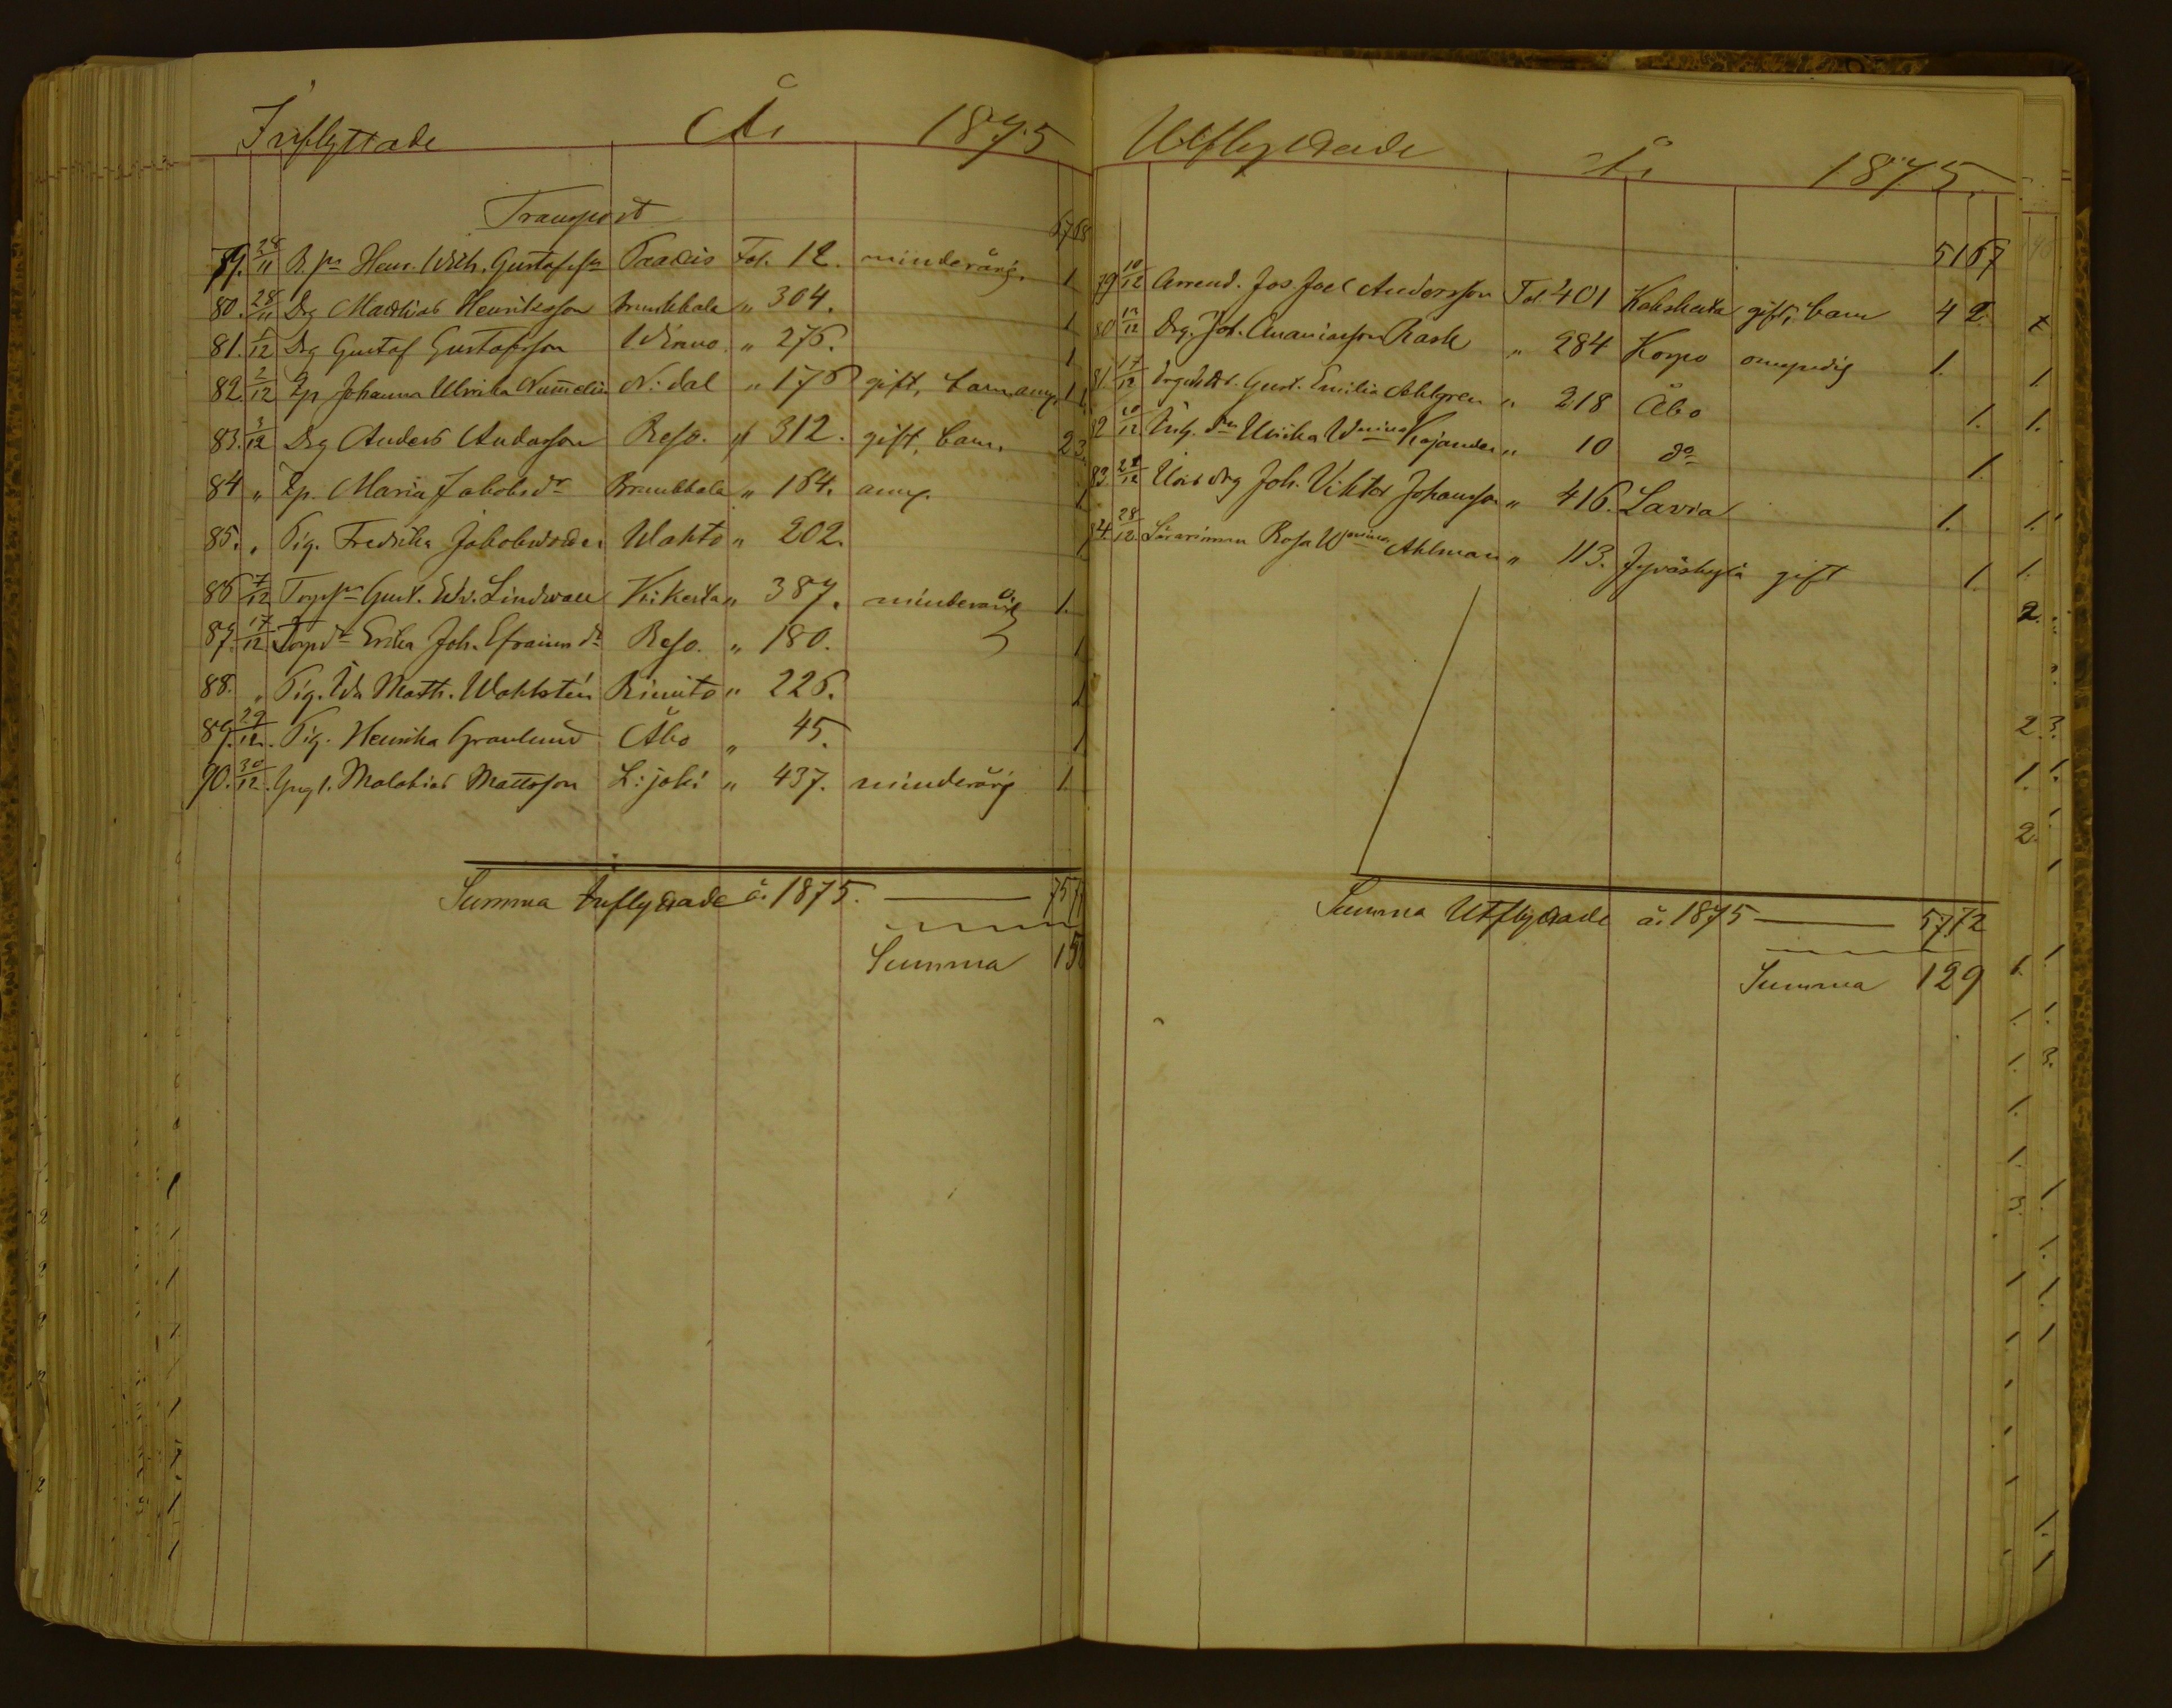 Inflyttade År 1875
Transport 6768
79. 28/11 B. sn Henr. Wilh. Gustafsson Paadis Fol. 12. minderårig. 1
80. 28/11 Drg Matthias Henriksson Brunkkala " 304. 1
81. 1/12 Drg Gustaf Gustafsson Wirmo " 276. 1
82. 2/12 Ep Johanna Ulrika Nummelin N:dal " 176 gift, barn, 1 1
83. 3/12 Drg Anders Andersson Reso. " 312. gift, barn. 2 3
84 " Ep. Maria Jakobsdr Brunkkala " 184. 
85. " Pig. Fredrika Jakobsdotter Wahto " 202.
86 7/12 Torpsn Gust. Edv. Lindwall Kiikoista " 387. minderårig 1.
87. 17/12 Torpdr Erika Joh. Efraimsdr Reso. " 180. 1
88. " Pig. Ida Math. Wahlstén Rimito " 226. 1
89. 29/12. Pig. Henrika Granlund Åbo " 45. 1
90. 30/12. Yngl. Malakias Mattsson L:joki " 437. minderårig 1.
Summa Inflyttade år 1875. 75 7
Summa 15
Utflyttade År 1875.
51 67
79 10/12 Arrend. Jos. Joel Andersson Fol. 401 gift, barn 4 2
80 Drg. Joh. Ananiasson Rask " 284 Korpo 1.
81 17/12 Gust. Emilia Ahlgren " 218 Åbo 1.
82 Ulrika Wmina Kajander " 10 do 1.
83. Joh. Viktor Johansson " 416. Lavia 1.
84. 28/12. Lärarinnan Rosa Wmina Ahlman " 113. Jyväskylä gift 1.
Summa Utflyttade år 1875 57 72
Summa 129